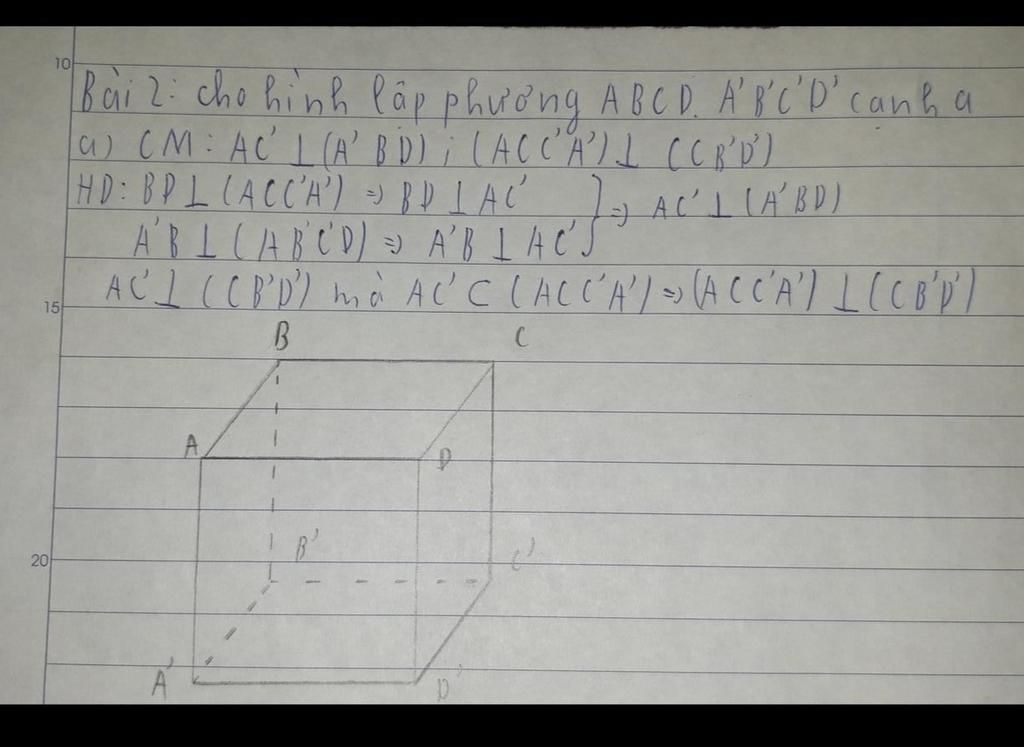 10
Bài 2: cho hình lập phương ABCD.A'B'C'D' cạnh a
a) CM: AC' ⊥ (A'BD); (ACC'A') ⊥ (CB'D')
HD: BD ⊥ (ACC'A') => BD ⊥ AC' } => AC' ⊥ (A'BD)
A'B ⊥ (AB'C'D) => A'B ⊥ AC'
15 AC' ⊥ (CB'D') mà AC' ⊂ (ACC'A') => (ACC'A') ⊥ (CB'D')
B C
A D
20 B' C'
A' D'